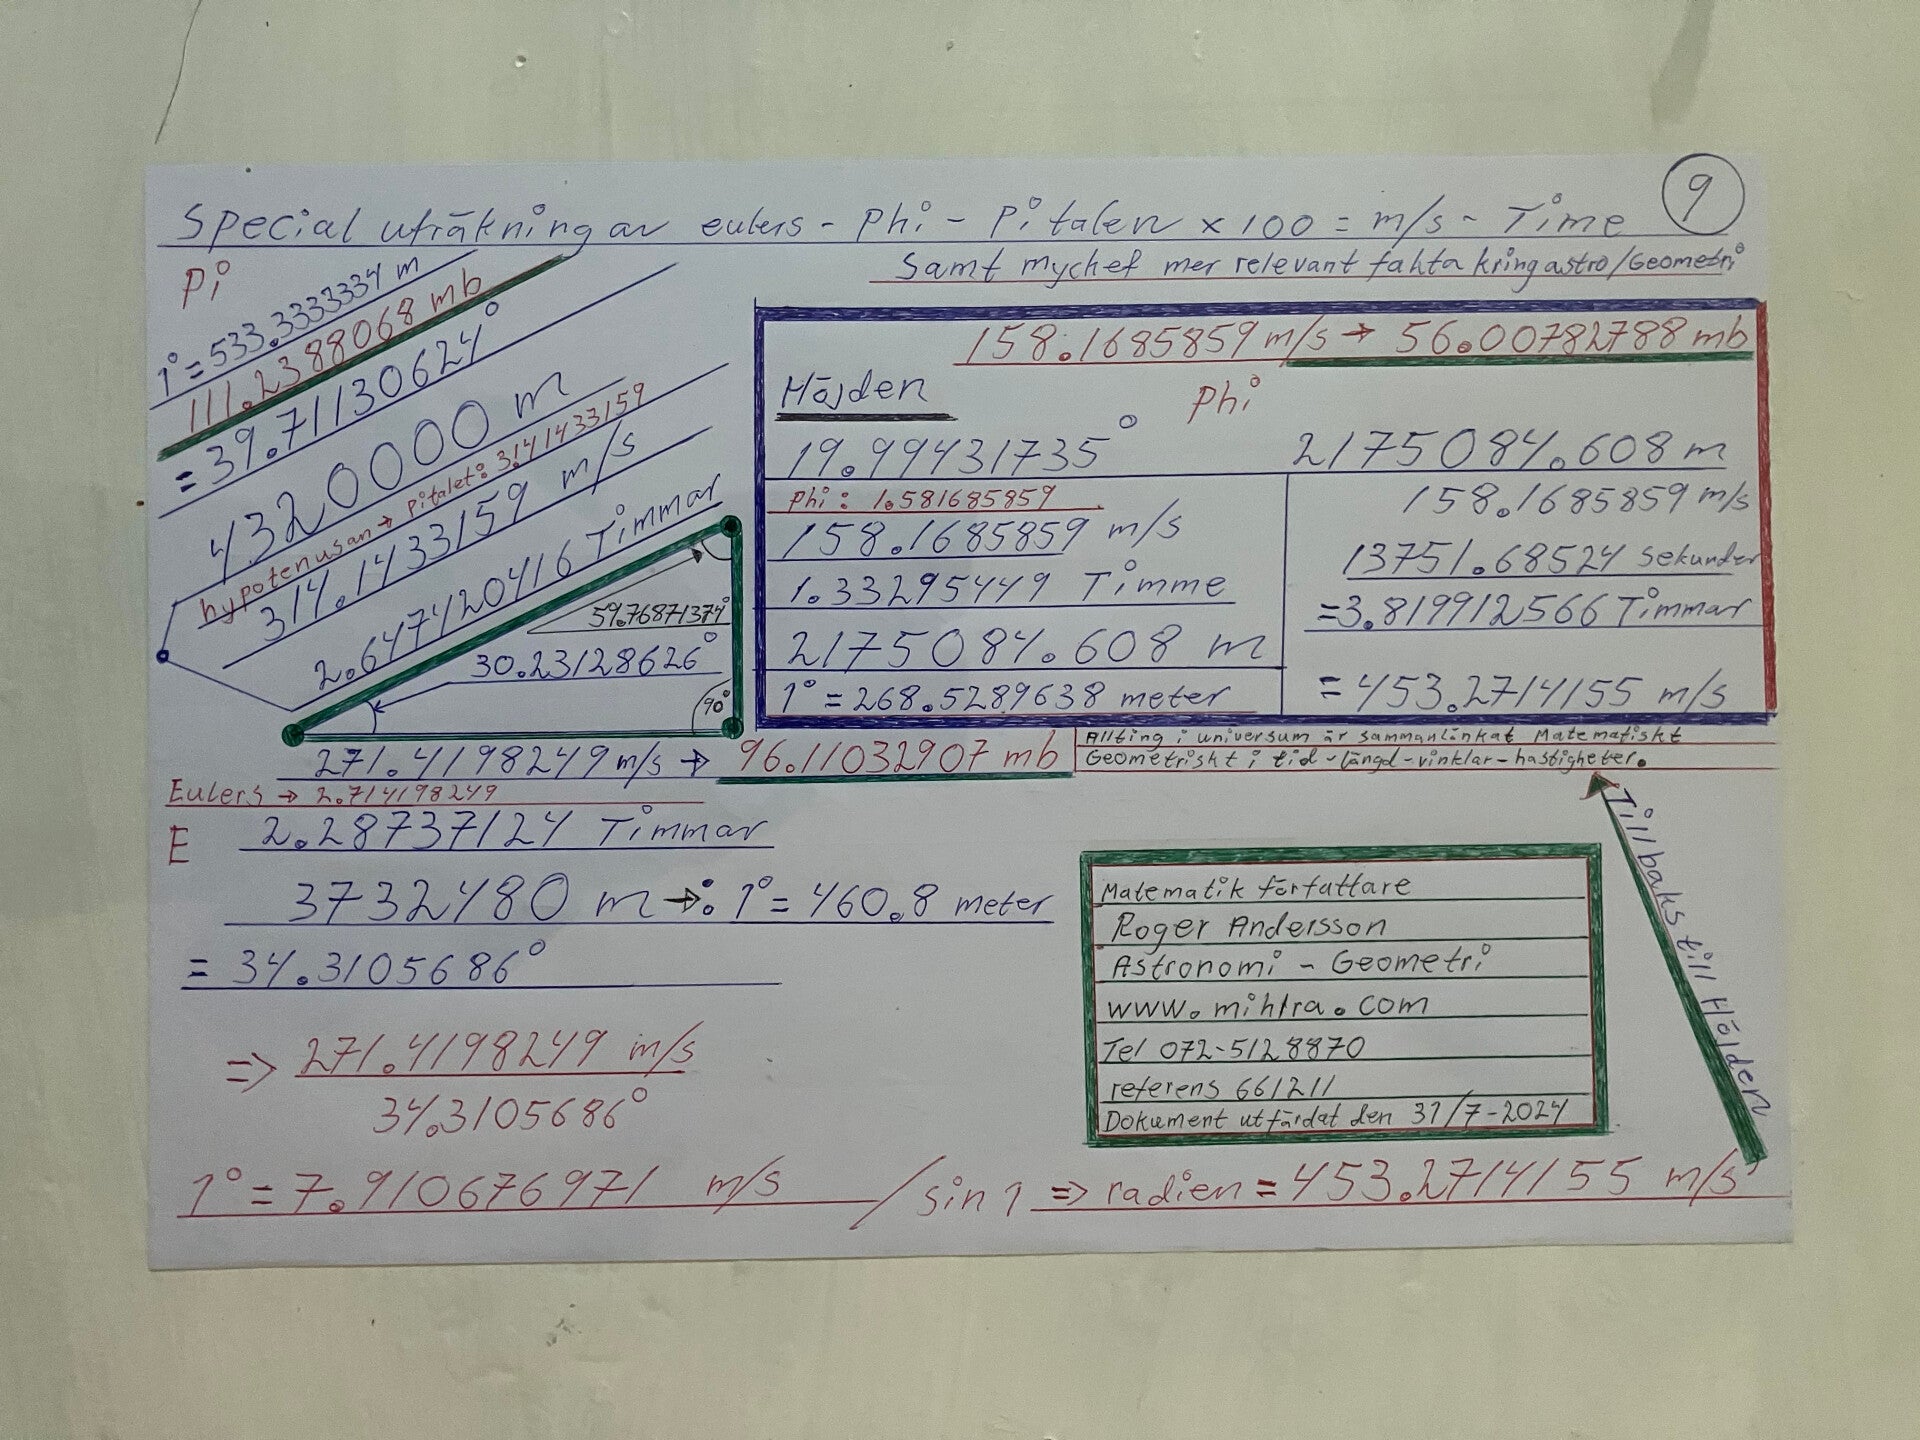 9
Special uträkning av eulers - Phi - Pi talen x 100 = m/s - Time
Samt mychet mer relevant fakta kring astro/Geometri
Pi
1° = 533.3333334 m
111.2388068 mb
= 39.71130624°
4320000 m
hypotenusan → Pitalet: 3.141433159
314.1433159 m/s
2.647420416 Timmar
59.76871374°
30.23128626°
90°
271.4198249 m/s → 96.11032907 mb
158.1685859 m/s → 56.00782788 mb
Höjden
Phi
19.99431735°
2175084.608 m
Phi: 1.581685859
158.1685859 m/s
1.33295449 Timme
2175084.608 m
1° = 268.5289638 meter
158.1685859 m/s
13751.68524 sekunder
=3.819912566 Timmar
= 453.2714155 m/s
Allting i universum är sammanlänkat Matematiskt
Geometriskt i tid-längd-vinklar-hastigheter.
Eulers → 2.714198249
E
2.28737124 Timmar
3732480 m →: 1° = 460.8 meter
= 34.3105686°
=> 271.4198249 m/s
34.3105686°
1° = 7.910676971 m/s / sin 1 => radien = 453.2714155 m/s
Tillbaks till Höjden
Matematik författare
Roger Andersson
Astronomi - Geometri
www.mihlra.com
Tel 072-5128870
referens 661211
Dokument utfärdat den 31/7-2024